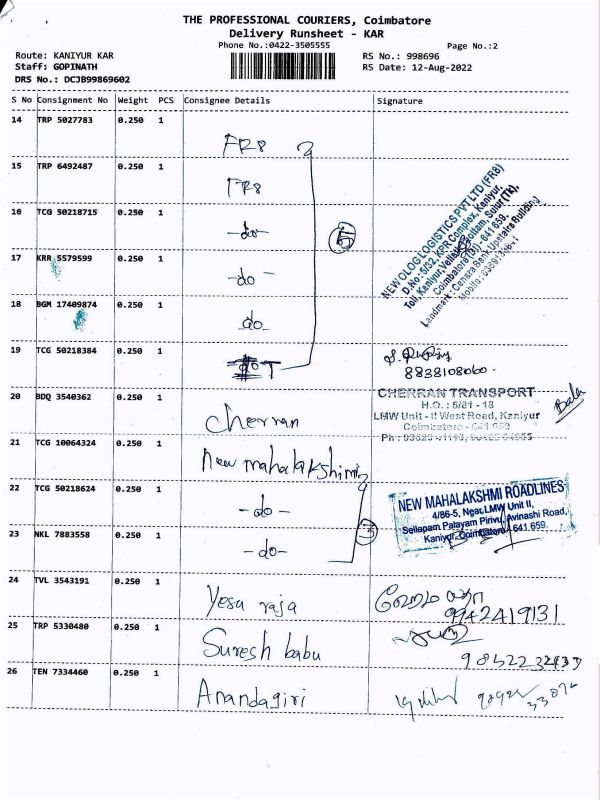 THE PROFESSIONAL COURIERS, Coimbatore
Delivery Runsheet - KAR
Phone No.:0422-3505555
Page No.:2
Route: KANIYUR KAR
RS No.: 998696
Staff: GOPINATH
RS Date: 12-Aug-2022
DRS No.: DCJB99869602
S No Consignment No Weight PCS Consignee Details Signature
14 TRP 5027783 0.250 1
FR8
15 TRP 6492487 0.250 1
FR8
16 TCG 50218715 0.250 1
-do-
5
17 KRR 5579599 0.250 1
-do-
NEW OLOG LOGISTICS PVT LTD (FR8)
D.No: 5/32, KPR Complex, Kaniyur,
Toll, Kaniyur, Sulur (Tk),
Coimbatore (Dt) - 641 659.
Landmark : Canara Bank Upstairs Building
Mobile :
18 BGM 17409874 0.250 1
do
19 TCG 50218384 0.250 1
8838108060.
20 BDQ 3540362 0.250 1
Cherran
CHERRAN TRANSPORT
H.O. : 5/81 - 18
LMW Unit - II West Road, Kaniyur
Coimbatore - 641 659
Ph :
Bala
21 TCG 10064324 0.250 1
New mahalakshimi
22 TCG 50218624 0.250 1
-do-
3
NEW MAHALAKSHMI ROADLINES
4/86-5, Near LMW Unit II,
Sellapam Palayam Pirivu, Avinashi Road,
Kaniyur, Coimbatore - 641 659.
23 NKL 7883558 0.250 1
-do-
24 TVL 3543191 0.250 1
Yesu raja
9942419131
25 TRP 5330480 0.250 1
Suresh babu
26 TEN 7334460 0.250 1
Anandagiri